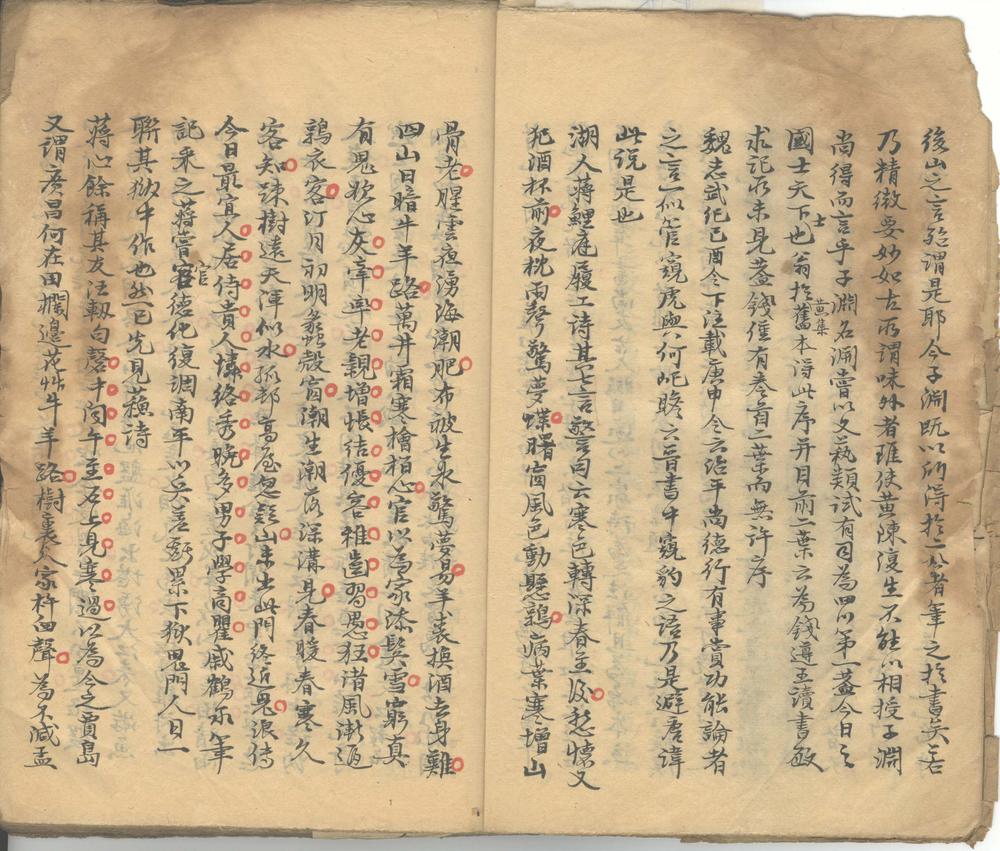 後山之言殆謂是耶今子淵既以所得於二公者筆之於書矣若
乃精微要妙如古所謂味外者雖使黄陳復生不能以相授子淵
尚得而言乎子淵名淵嘗以文藝類試有司為四川第一蓋今日之
國士天下士也翁於舊黄集本得此序并目前二葉云為錢遵王讀書敏
求記所未見蓋錢僅有卷首一葉而無許序
魏志武紀己酉令下注載庚申令云治平尚德行有事賞功能論者
之言一似管窺虎與何屺瞻云晉書牛窺豹之語乃是避唐諱
此説是也
湖人蔣鯉庭履工诗其七言警句云寒色轉深春主後愁懷又
犯酒杯前夜枕雨聲驚夢蝶曙窗風色動懸鶉病葉寒增山
骨老腥雲夜湧海潮肥布被生氷驚夢易羊裘換酒去身難
四山日暗牛羊路萬井霜寒檜柏心官以為家添鬓雪窮真
有鬼歎心灰宰卑老親增悵结優客雜齒習愚狂渚風漸逼
鶉衣客汀月初明蠡殼窗潮生潮落深溝見春暖春寒久
客知疎樹遠天渾似水孤邨高屋忽疑山未出此門終近鬼浪傳
今日最宜人居侍貴人慵络秀晚多男子學商瞿戚鶴泉筆
記采之蔣嘗官德化復調南平以吳善虧累下獄鬼門人日一
聯其獄中作也然已先見穐诗
蔣心餘稱其友汪軔句磬中向午至石上見寒過以為今之賈島
又謂廣昌何在田欄邊花艸牛羊路樹裏人家杵臼聲為不減孟